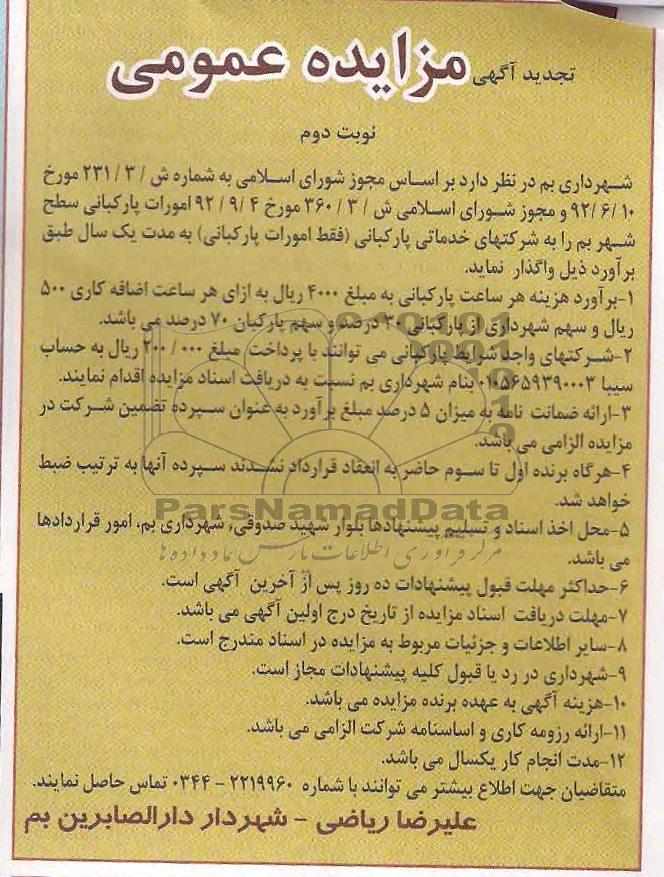 تجدید آگهی مزایده عمومی
نوبت دوم
شهرداری بم در نظر دارد بر اساس مجوز شورای اسلامی به شماره ش / ۳ / ۲۳۱ مورخ
۹۲/۶/۱۰ و مجوز شورای اسلامی ش / ۳ / ۳۶۰ مورخ ۹۲/۹/۴ امورات پارکبانی سطح
شهر بم را به شرکتهای خدماتی پارکبانی (فقط امورات پارکبانی) به مدت یک سال طبق
برآورد ذیل واگذار نماید.
۱-برآورد هزینه هر ساعت پارکبانی به مبلغ ۴۰۰۰ ریال به ازای هر ساعت اضافه کاری ۵۰۰
ریال و سهم شهرداری از پارکبانی ۳۰ درصد و سهم پارکبان ۷۰ درصد می باشد.
۲-شرکتهای واجد شرایط پارکبانی می توانند با پرداخت مبلغ ۲۰۰/۰۰۰ ریال به حساب
سیبا ۰۱۰۵۶۵۹۳۹۰۰۰۳ بنام شهرداری بم نسبت به دریافت اسناد مزایده اقدام نمایند.
۳-ارائه ضمانت نامه به میزان ۵ درصد مبلغ برآورد به عنوان سپرده تضمین شرکت در
مزایده الزامی می باشد.
۴-هرگاه برنده اول تا سوم حاضر به انعقاد قرارداد نشدند سپرده آنها به ترتیب ضبط
خواهد شد.
ParsNamadData
۵-محل اخذ اسناد و تسلیم پیشنهادها بلوار شهید صدوقی، شهرداری بم، امور قراردادها
می باشد.
مرکز فرآوری اطلاعات پارس نماد داده ها
۶-حداکثر مهلت قبول پیشنهادات ده روز پس از آخرین آگهی است.
۷-مهلت دریافت اسناد مزایده از تاریخ درج اولین آگهی می باشد.
۸-سایر اطلاعات و جزئیات مربوط به مزایده در اسناد مندرج است.
۹-شهرداری در رد یا قبول کلیه پیشنهادات مجاز است.
۱۰-هزینه آگهی به عهده برنده مزایده می باشد.
۱۱-ارائه رزومه کاری و اساسنامه شرکت الزامی می باشد.
۱۲-مدت انجام کار یکسال می باشد.
متقاضیان جهت اطلاع بیشتر می توانند با شماره ۲۲۱۹۹۶۰ - ۰۳۴۴ تماس حاصل نمایند.
علیرضا ریاضی - شهردار دارالصابرین بم